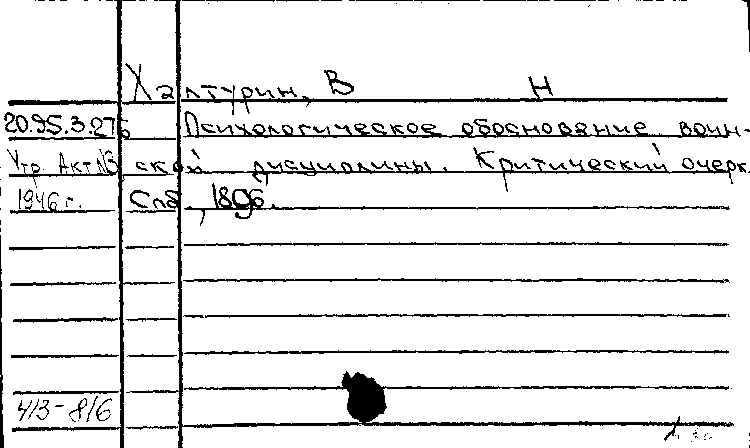 Халтурин, В Н
20.95.3.275 Психологическое обоснование воин-
Утр. Акт №3 ской дисциплины. Критический очерк.
1946 г. Спб, 1896.
413-816